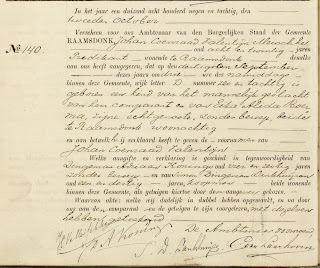 In het jaar een duizend acht honderd negen en tachtig, den
tweeden October
Verscheen voor ons Ambtenaar van den Burgerlijken Stand der Gemeente
RAAMSDONK, Johan Coenraad Valentijn
No 140. oud acht en twintig jaren
Predikant wonende te Raamsdonk dewelke
aan ons heeft aangegeven, dat op den dertigsten September
dezes jaars, des middags
binnen deze Gemeente, wijk letter D nummer tachtig is
geboren een kind van het mannelijk geslacht
van hem comparant en van
ma, zijne echtgenoote, zonder beroep, beide
te Raamsdonk woonachtig
en aan hetwelk hij verklaard heeft te geven de voornamen van
Johan Coenraad Valentijn
Welke aangifte en verklaring is geschied in tegenwoordigheid van
Adriaan Koning oud en dertig jaren
zonder beroep en van
oud en dertig jaren, beide wonende
binnen deze Gemeente, als getuigen hiertoe door den aangever gekozen.
Waarvan akte; welke wij dadelijk in dubbel hebben opgemaakt, en na door
ons aan den comparant en de getuigen te zijn voorgelezen, met dezelven
hebben geteekend
De Ambtenaar voornoemd
A. Koning